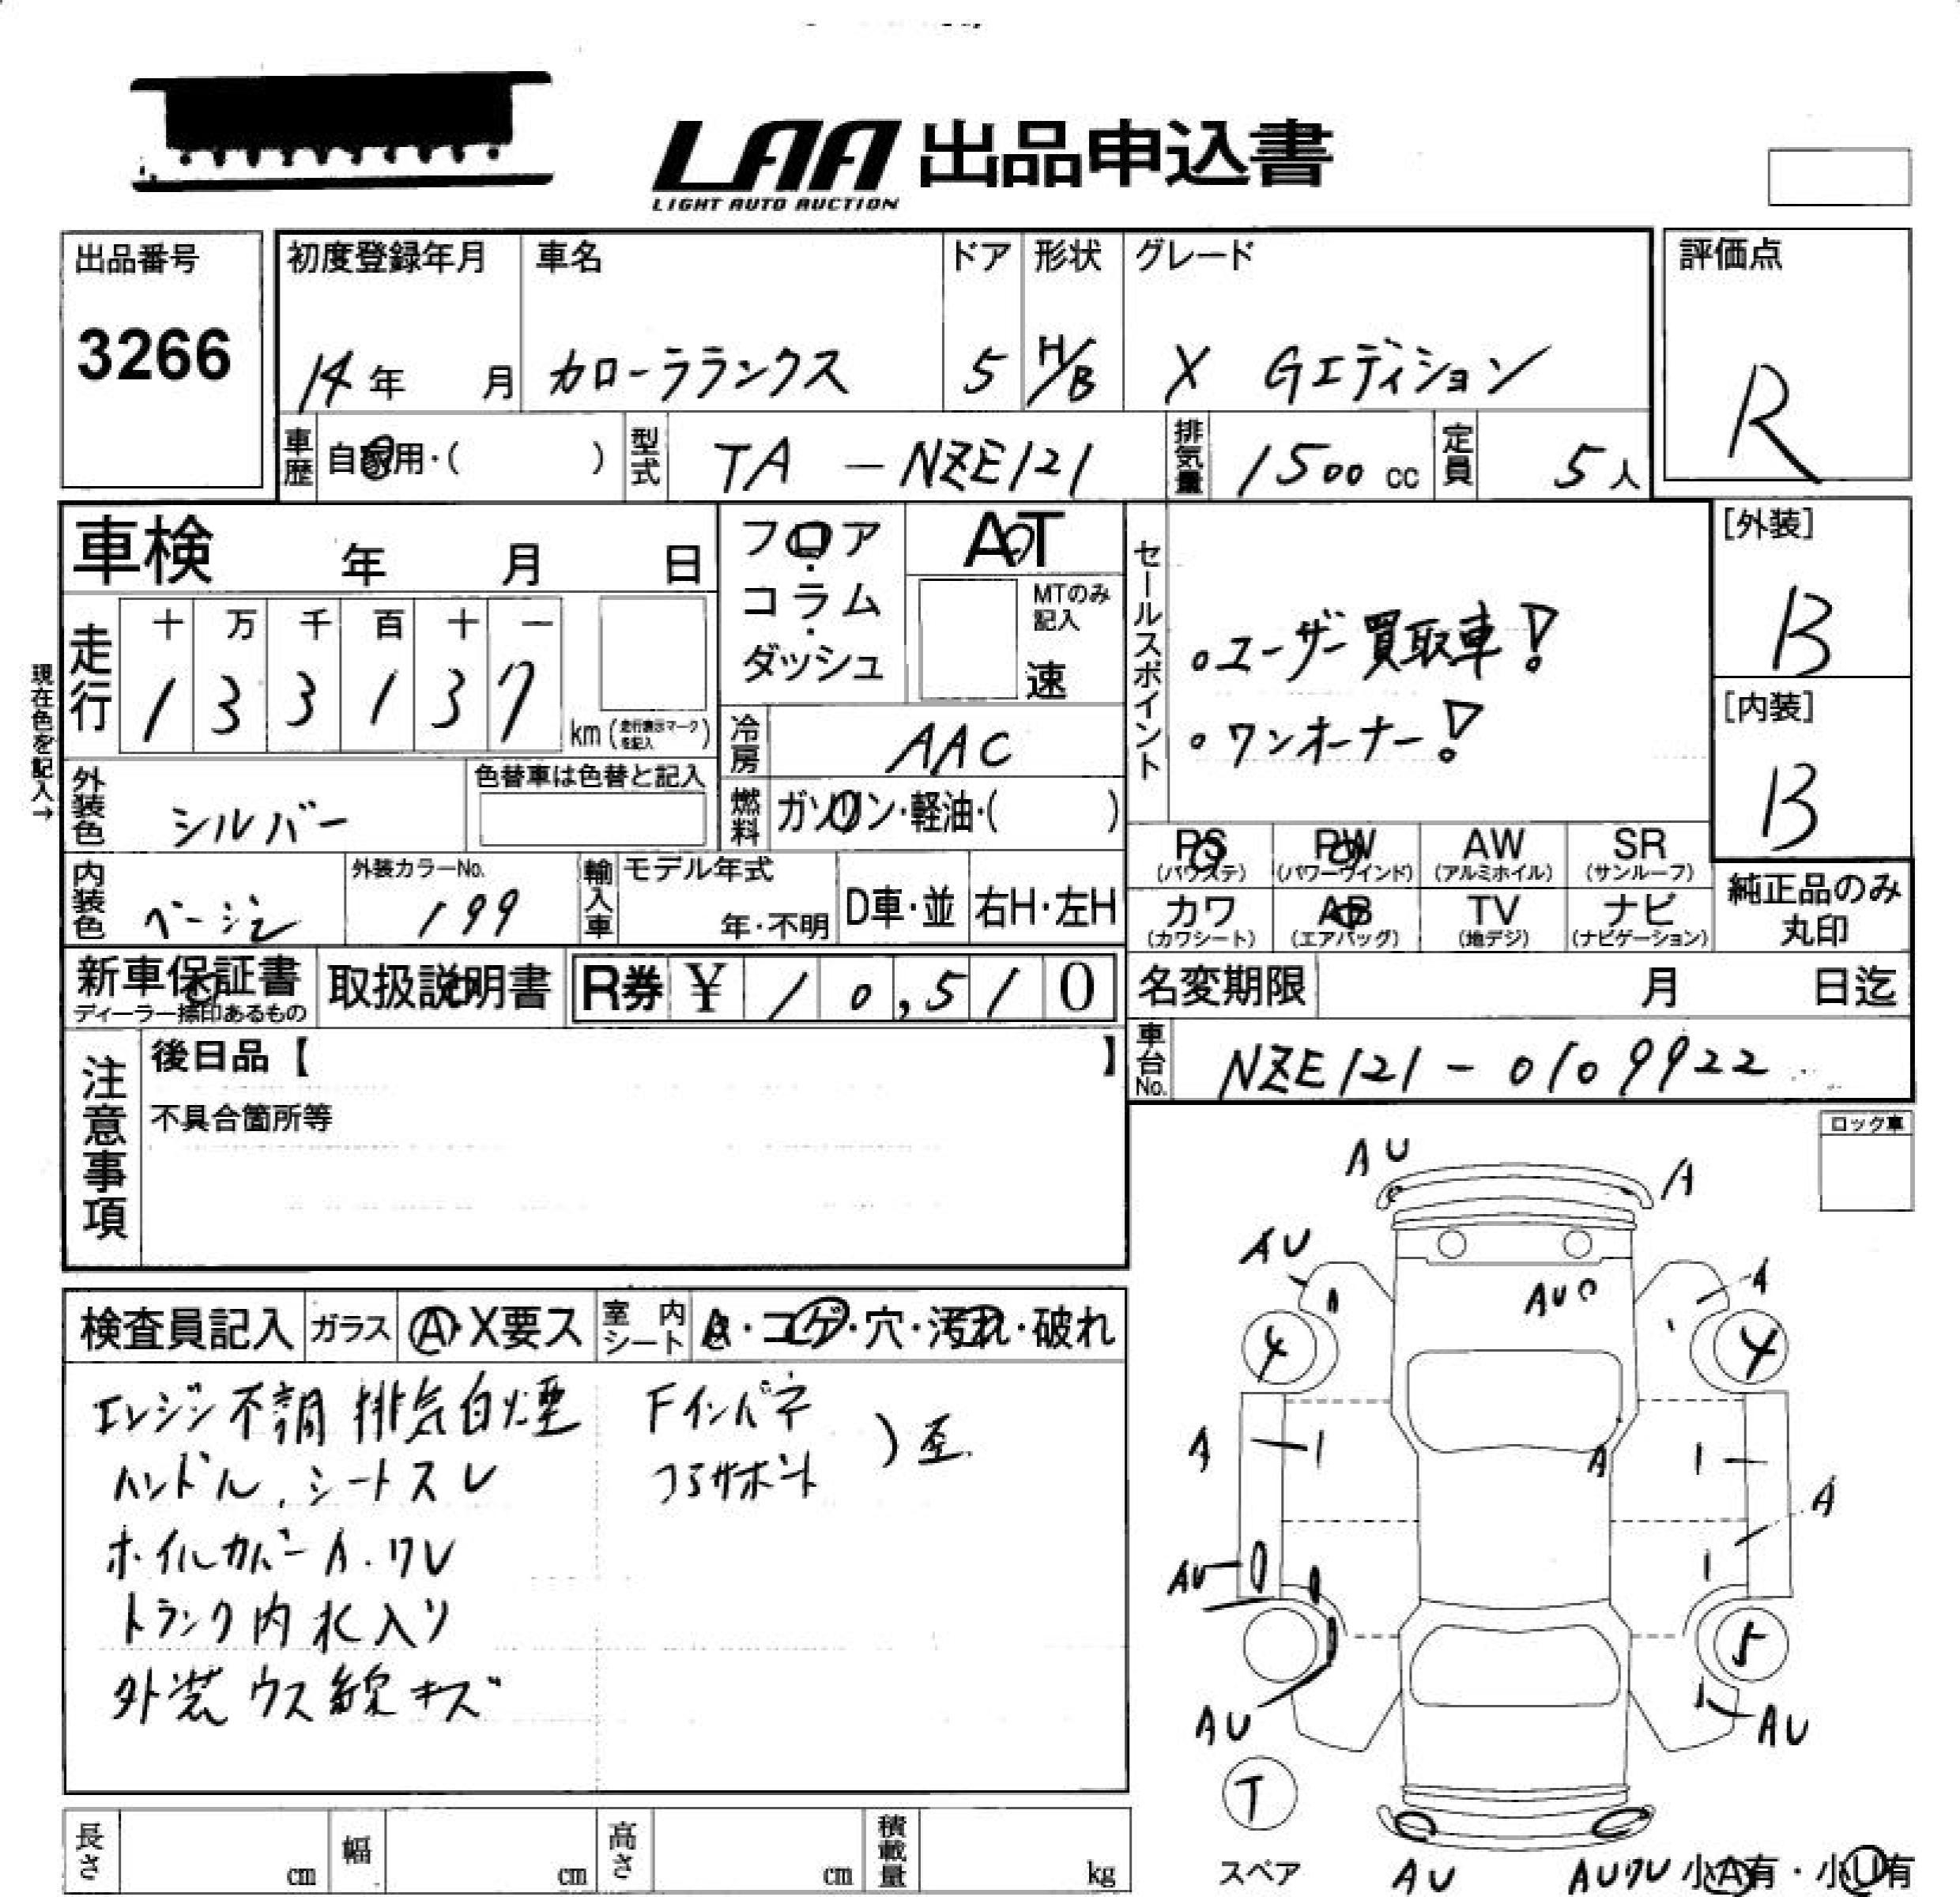 LAA 出品申込書
LIGHT AUTO AUCTION
出品番号
3266
初度登録年月
14年 月
車名
カローラランクス
ドア
5
形状
H/B
グレード
X Gエディション
評価点
R
車歴
自家用・( )
型式
TA-NZE121
排気量
1500cc
定員
5人
車検 年 月 日
フロア・コラム・ダッシュ
AT
MTのみ記入
速
セールスポイント
。ユーザー買取車!
。ワンオーナー!
[外装]
B
[内装]
B
現在色を記入→
走行
十 万 千 百 十 一
1 3 3 1 3 7
km(走行表示マークを記入)
冷房
AAC
外装色
シルバー
色替車は色替と記入
燃料
ガソリン・軽油・( )
内装色
ベージュ
外装カラーNo.
199
輸入車
モデル年式
年・不明
D車・並
右H・左H
PS
(パワステ)
PW
(パワーウインド)
AW
(アルミホイル)
SR
(サンルーフ)
カワ
(カワシート)
AB
(エアバッグ)
TV
(地デジ)
ナビ
(ナビゲーション)
純正品のみ
丸印
新車保証書
ディーラー捺印あるもの
取扱説明書
R券 ¥ 1 0,5 1 0
名変期限 月 日迄
車台No.
NZE121-0109922
注意事項
後日品【 】
不具合箇所等
ロック車
検査員記入
ガラス
A・X要ス
室内シート
A・コゲ・穴・汚れ・破れ
エンジン不調 排気白煙
ハンドル、シートスレ
ホイルカバーA.ワレ
トランク内水入り
外装ウス線キズ
Fインパネ
コアサポート
)歪
AU
A
AU
A
AU
4
4
A
A
A
AU
5
AU
AU
T
スペア
AU
AUワレ
小A有・小U有
長さ cm
幅 cm
高さ cm
積載量 kg